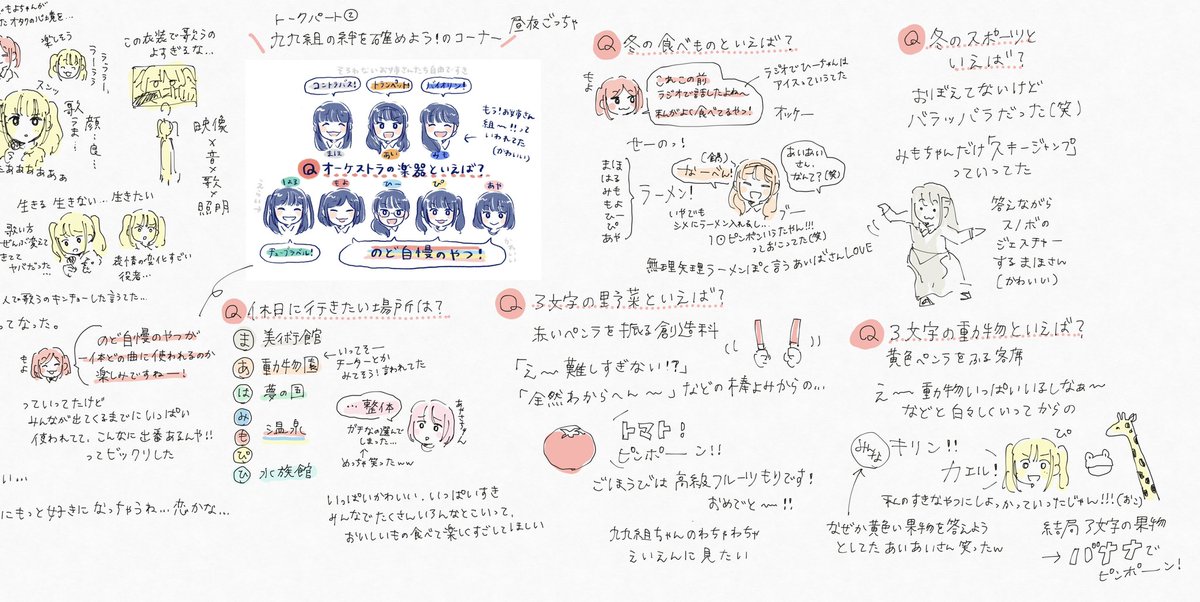 楽しそう
ラララ〜
ラーララ
スンッ
歌うま…
顔…良…
たぁぁぁぁぁぁ
この衣装で歌うの
よすぎるな…
映像
×
音
×
歌
×
照明
生きる 生きない… 生きたい
歌い方
ぜんぶ変えて
きてて
ヤバだった…
表情の変化すごい
役者…
人で歌うのキンチョーした言うてた…
ってなった。
もよ
のど自慢のやつが
一体どの曲に使われるのか
楽しみですねー!
っていってたけど
みんなが出てくるまでにいっぱい
使われてて、こんなに出番あるんや!!
ってビックリした
い…
にもっと好きになっちゃうね…恋かな…
トークパート②
九九組の絆を確めよう!のコーナー
昼夜ごっちゃ
そろわないお姉さんたち自由ですき
コントラバス!
トランペット!
バイオリン!
まほ
あい
みも
もう!お姉さん
組〜!!って
いわれてた
(かわいい)
Q オーケストラの楽器といえば?
はる
もよ
ひー
ぴ
あや
チューブラベル!
のど自慢のやつ!
Q 休日に行きたい場所は?
ま 美術館
あ 動物園
いってそー
チーターとか
みてそう!言われてた
は 夢の国
み
も 温泉
ぴ
ひ 水族館
…整体
あやさちゃん
ガチなの選んで
しまった…
めっちゃ笑ったww
いっぱいかわいい、いっぱいすき
みんなでたくさんいろんなとこいって、
おいしいもの食べて楽しくすごしてほしい
Q 冬の食べものといえば?
もよ
これ、この前
ラジオで話したよね〜
私がよく食べてるやつ!
ラジオでひーちゃんは
アイスっていってた
オッケー
せーのっ!
まほ
はる
みも
もよ
ひー
ぴ
あや
ラーメン!
(鍋)
なーべん!
あいあい
さん、
なんて?(笑)
ブー
いやでも
シメにラーメン入れるし…
1回ピンポンいうたやん!!!
っておこってた(笑)
無理矢理ラーメンぽく言うあいばさんLOVE
Q 冬のスポーツと
いえば?
おぼえてないけど
バラッバラだった(笑)
みもちゃんだけ「スキージャンプ」
っていってた
答えながら
スノボの
ジェスチャー
するまほさん
(かわいい)
Q 3文字の野菜といえば?
赤いペンラを振る創造科
「え〜難しすぎない!?」
「全然わからへん〜」などの棒よみからの…
トマト!
ピンポーン!!
ごほうびは高級フルーツもりです!
おめでと〜!!
九九組ちゃんのわちゃわちゃ
えいえんに見たい
Q 3文字の動物といえば?
黄色ペンラをふる客席
え〜動物いっぱいいるしなぁ〜
などと白々しくいってからの
みんな
キリン!!
カエル!
ぴ
私のすきなやつにしよっかっていったじゃん!!!(おこ)
なぜか黄色い果物を答えよう
としてたあいあいさん笑ったw
結局3文字の果物
→バナナで
ピンポーン!